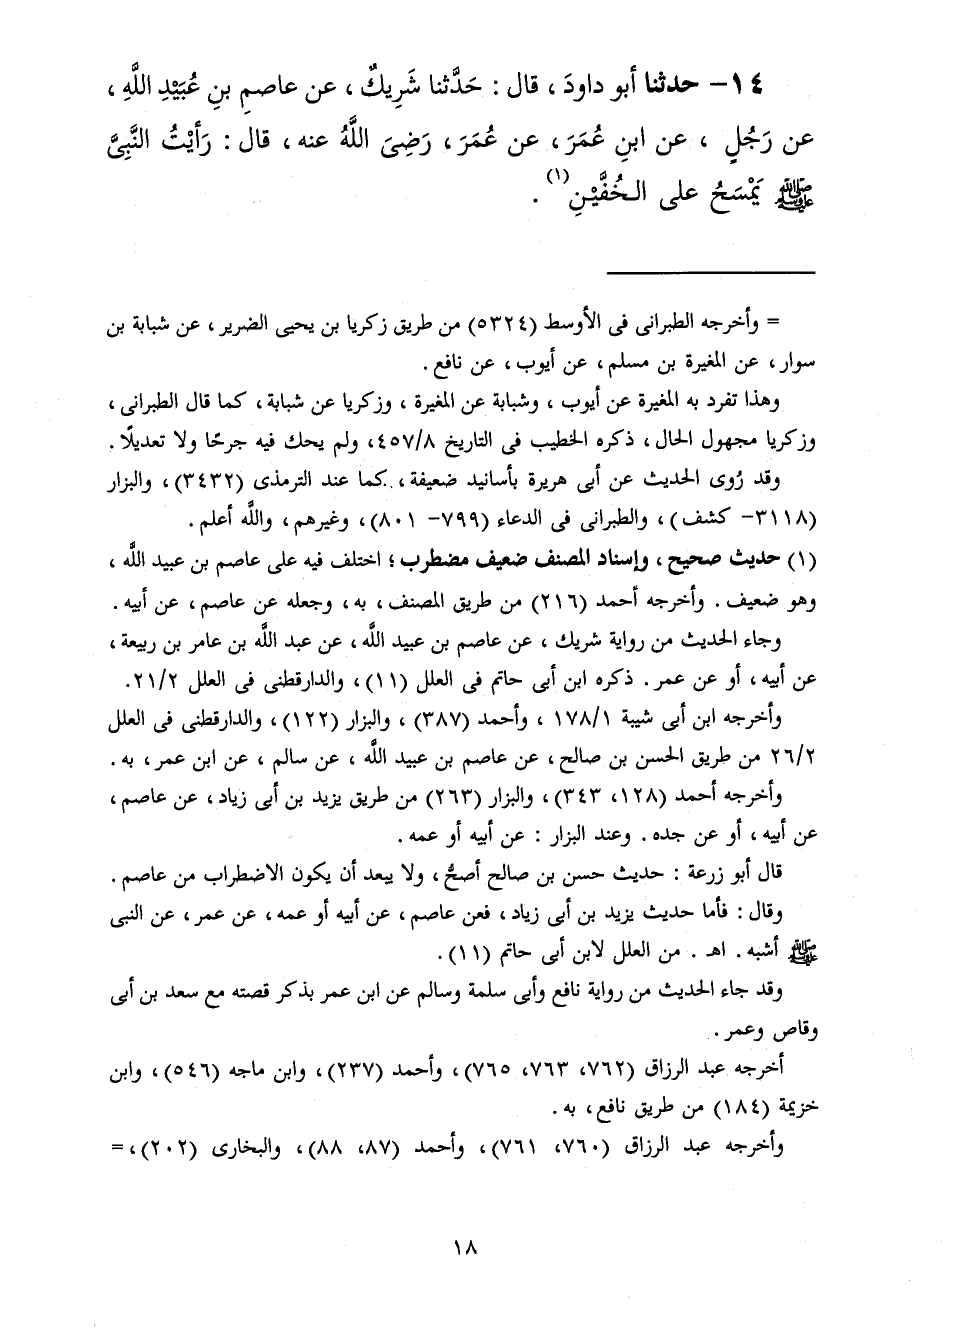 ١٤- حدثنا أبو داودَ ، قال : حَدَّثنا شَرِيكٌ ، عن عاصمِ بنِ عُبَيْدِ اللَّهِ ،
عن رَجُلٍ ، عن ابنِ عُمَرَ ، عن عُمَرَ ، رَضِىَ اللَّهُ عنه ، قال : رَأيْتُ النَّبِىَّ
ﷺ يَمْسَحُ على الخُفَّيْنِ(١) .
= وأخرجه الطبرانى فى الأوسط (٥٣٢٤) من طريق زكريا بن يحيى الضرير ، عن شبابة بن
سوار ، عن المغيرة بن مسلم ، عن أيوب ، عن نافع .
وهذا تفرد به المغيرة عن أيوب ، وشبابة عن المغيرة ، وزكريا عن شبابة ، كما قال الطبرانى ،
وزكريا مجهول الحال ، ذكره الخطيب فى التاريخ ٤٥٧/٨ ، ولم يحك فيه جرحًا ولا تعديلًا .
وقد رُوى الحديث عن أبى هريرة بأسانيد ضعيفة ، كما عند الترمذى (٣٤٣٢) ، والبزار
(٣١١٨- كشف) ، والطبرانى فى الدعاء (٧٩٩- ٨٠١) ، وغيرهم ، والله أعلم .
(١) حديث صحيح ، وإسناد المصنف ضعيف مضطرب ؛ اختلف فيه على عاصم بن عبيد اللَّه ،
وهو ضعيف . وأخرجه أحمد (٢١٦) من طريق المصنف ، به ، وجعله عن عاصم ، عن أبيه .
وجاء الحديث من رواية شريك ، عن عاصم بن عبيد اللَّه ، عن عبد اللَّه بن عامر بن ربيعة ،
عن أبيه ، أو عن عمر . ذكره ابن أبى حاتم فى العلل (١١) ، والدارقطنى فى العلل ٢١/٢ .
وأخرجه ابن أبى شيبة ١٧٨/١ ، وأحمد (٣٨٧) ، والبزار (١٢٢) ، والدارقطنى فى العلل
٢٦/٢ من طريق الحسن بن صالح ، عن عاصم بن عبيد اللَّه ، عن سالم ، عن ابن عمر ، به .
وأخرجه أحمد (١٢٨، ٣٤٣) ، والبزار (٢٦٣) من طريق يزيد بن أبى زياد ، عن عاصم ،
عن أبيه ، أو عن جده . وعند البزار : عن أبيه أو عمه .
قال أبو زرعة : حديث حسن بن صالح أصحُّ ، ولا يبعد أن يكون الاضطراب من عاصم .
وقال : فأما حديث يزيد بن أبى زياد ، فعن عاصم ، عن أبيه أو عمه ، عن عمر ، عن النبى
ﷺ أشبه . اهـ . من العلل لابن أبى حاتم (١١) .
وقد جاء الحديث من رواية نافع وأبى سلمة وسالم عن ابن عمر بذكر قصته مع سعد بن أبى
وقاص وعمر .
أخرجه عبد الرزاق (٧٦٢، ٧٦٣، ٧٦٥) ، وأحمد (٢٣٧) ، وابن ماجه (٥٤٦) ، وابن
خزيمة (١٨٤) من طريق نافع ، به .
وأخرجه عبد الرزاق (٧٦٠، ٧٦١) ، وأحمد (٨٧، ٨٨) ، والبخارى (٢٠٢) ، =
١٨